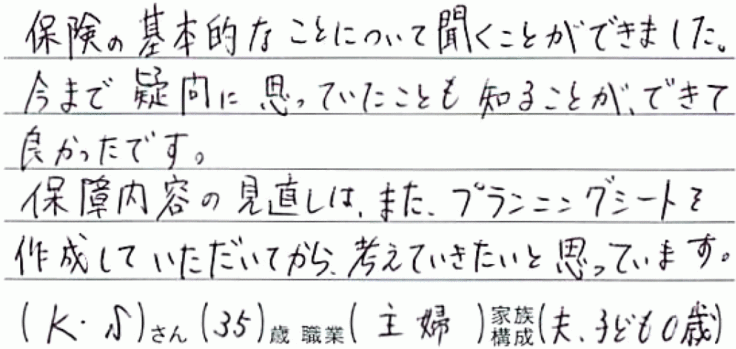 保険の基本的なことについて聞くことができました。
今まで疑問に思っていたことも知ることが、できて
良かったです。
保障内容の見直しは、また、プランニングシートを
作成していただいてから、考えていきたいと思っています。
(K・S)さん(35)歳 職業(主婦)家族構成(夫、子ども0歳)